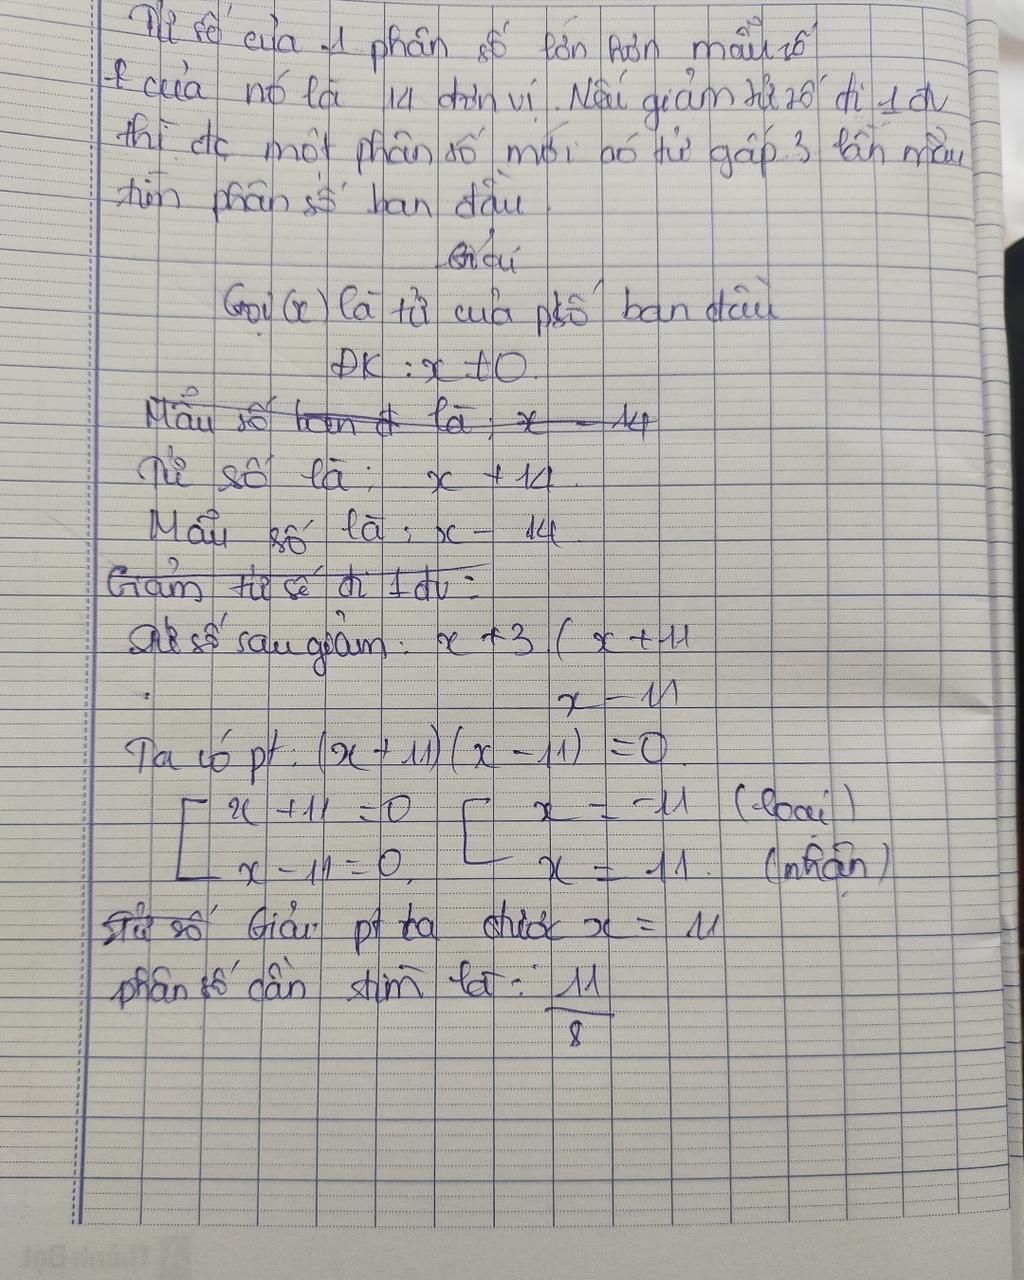 Tử số của 1 phân số lớn hơn mẫu số
của nó là 14 đơn vị. Nếu giảm tử số đi 1 đv
thì đc một phân số mới có tử gấp 3 lần mẫu
tìm phân số ban đầu
Giải
Gọi (x) là tử của phố ban đầu
ĐK : x ≠ 0.
Mẫu số ban đ là : x - 14
Tử số là : x + 14.
Mẫu số là : x - 14
Giảm tử số đi 1 đv :
Tử số sau giảm : x + 3 ( x + 11
x - 11
Ta có pt : (x + 11) (x - 11) = 0
[ x + 11 = 0 [ x = -11 (loại)
x - 11 = 0. x = 11. (nhận)
Tử số Giải pt ta được x = 11
phân số cần tìm là : 11
8